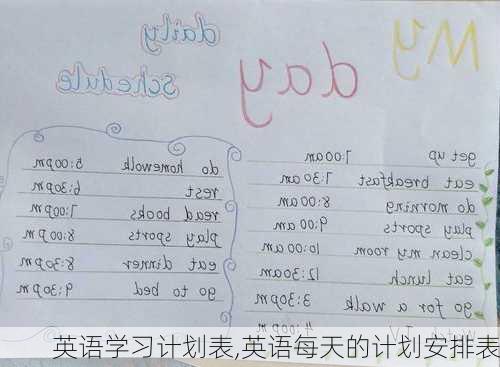 My
day
daily
schedule
get up 7:00am
eat breakfast 7:30am
do morning 8:00am
play sports 9:00am
clean my room 10:00am
eat lunch 12:30am
go for a walk 3:30pm
do homewolk 5:00pm
rest 6:30pm
read books 7:00pm
play sports 8:00pm
eat dinner 8:30pm
go to bed 9:30pm
英语学习计划表,英语每天的计划安排表